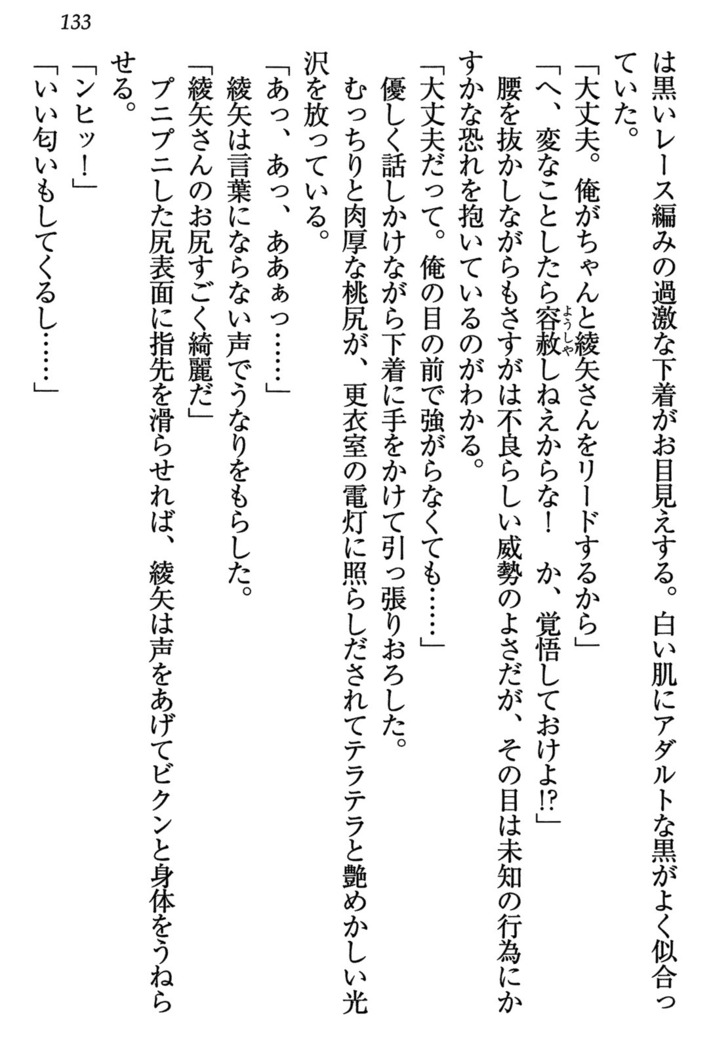 133
は黒いレース編みの過激な下着がお目見えする。白い肌にアダルトな黒がよく似合っ
ていた。
「大丈夫。俺がちゃんと綾矢さんをリードするから」
「へ、変なことしたら容赦しねえからな！　か、覚悟しておけよ!?」
ようしゃ
腰を抜かしながらもさすがは不良らしい威勢のよさだが、その目は未知の行為にか
すかな恐れを抱いているのがわかる。
「大丈夫だって。俺の目の前で強がらなくても……」
優しく話しかけながら下着に手をかけて引っ張りおろした。
むっちりと肉厚な桃尻が、更衣室の電灯に照らしだされてテラテラと艶めかしい光
沢を放っている。
「あっ、あっ、ああぁっ……」
綾矢は言葉にならない声でうなりをもらした。
「綾矢さんのお尻すごく綺麗だ」
プニプニした尻表面に指先を滑らせれば、綾矢は声をあげてビクンと身体をうねら
せる。
「ンヒッ！」
「いい匂いもしてくるし……」